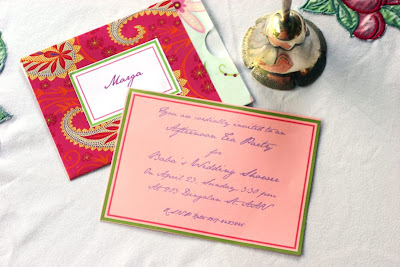 Marga
You are cordially invited to an
Afternoon Tea Party
for
Baba's Wedding Shower
On April 23, Sunday, 3:30 pm
RSVP